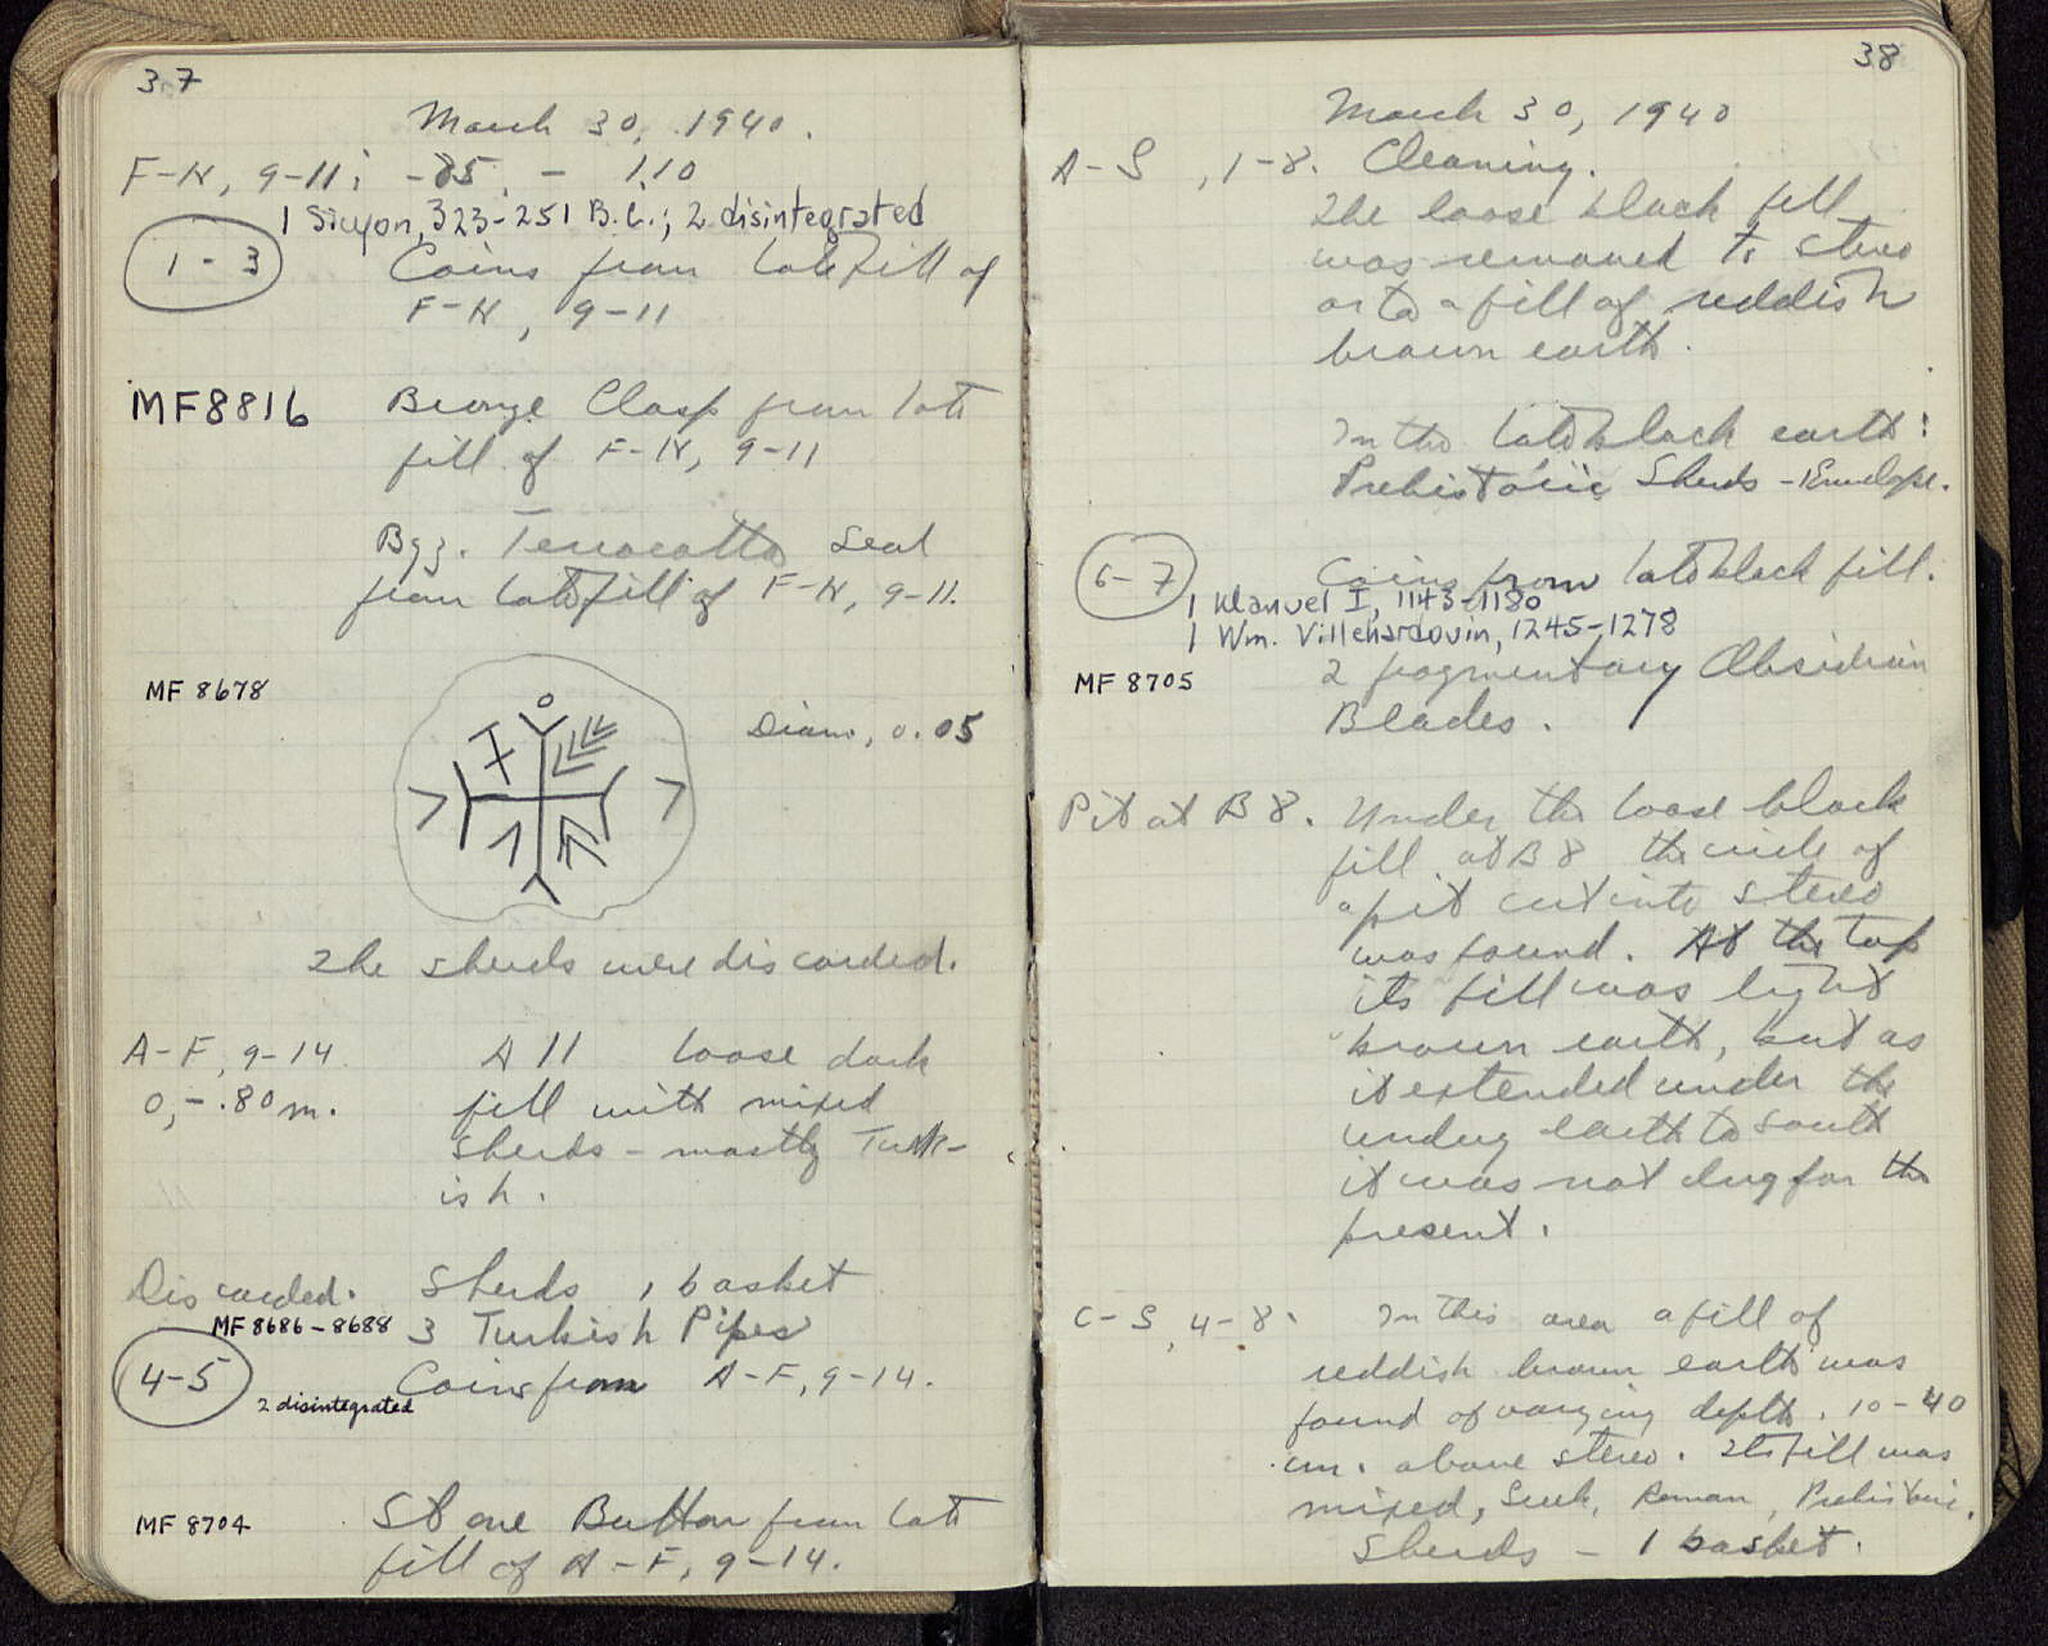 37
March 30, 1940.
F-H, 9-11; -.85. - 1.10
1 Sicyon, 323-251 B.C.; 2 disintegrated
1-3 Coins from late fill of
F-H, 9-11
MF8816 Bronze Clasp from late
fill of F-H, 9-11
Byz. Terracotta Seal
from late fill of F-H, 9-11.
MF 8678
Diam, 0.05
The sherds were discarded.
A-F, 9-14 All loose dark
0,-.80m. fill with mixed
sherds - mostly Turk-
ish.
Discarded. Sherds 1 basket
MF 8686-8688 3 Turkish Pipes
4-5 Coins from A-F, 9-14.
2 disintegrated
MF 8704 Stone Button from late
fill of A-F, 9-14.
38
March 30, 1940
A-S, 1-8. Cleaning.
The loose black fill
was removed to stereo
or to a fill of reddish
brown earth.
In the late black earth:
Prehistoric Sherds - 1 Envelope.
6-7 Coins from late black fill.
1 Manuel I, 1143-1180
1 Wm. Villehardouin, 1245-1278
MF 8705 2 fragmentary Obsidian
Blades.
Pit at B 8. Under the loose black
fill at B 8 the circle of
a pit cut into stereo
was found. At the top
its fill was light
brown earth, but as
it extended under the
undug earth to south
it was not dug for the
present.
C-S, 4-8. In this area a fill of
reddish brown earth was
found of varying depth. 10-40
cm. above stereo. Its fill was
mixed, Greek, Roman, Prehistoric.
Sherds - 1 basket.